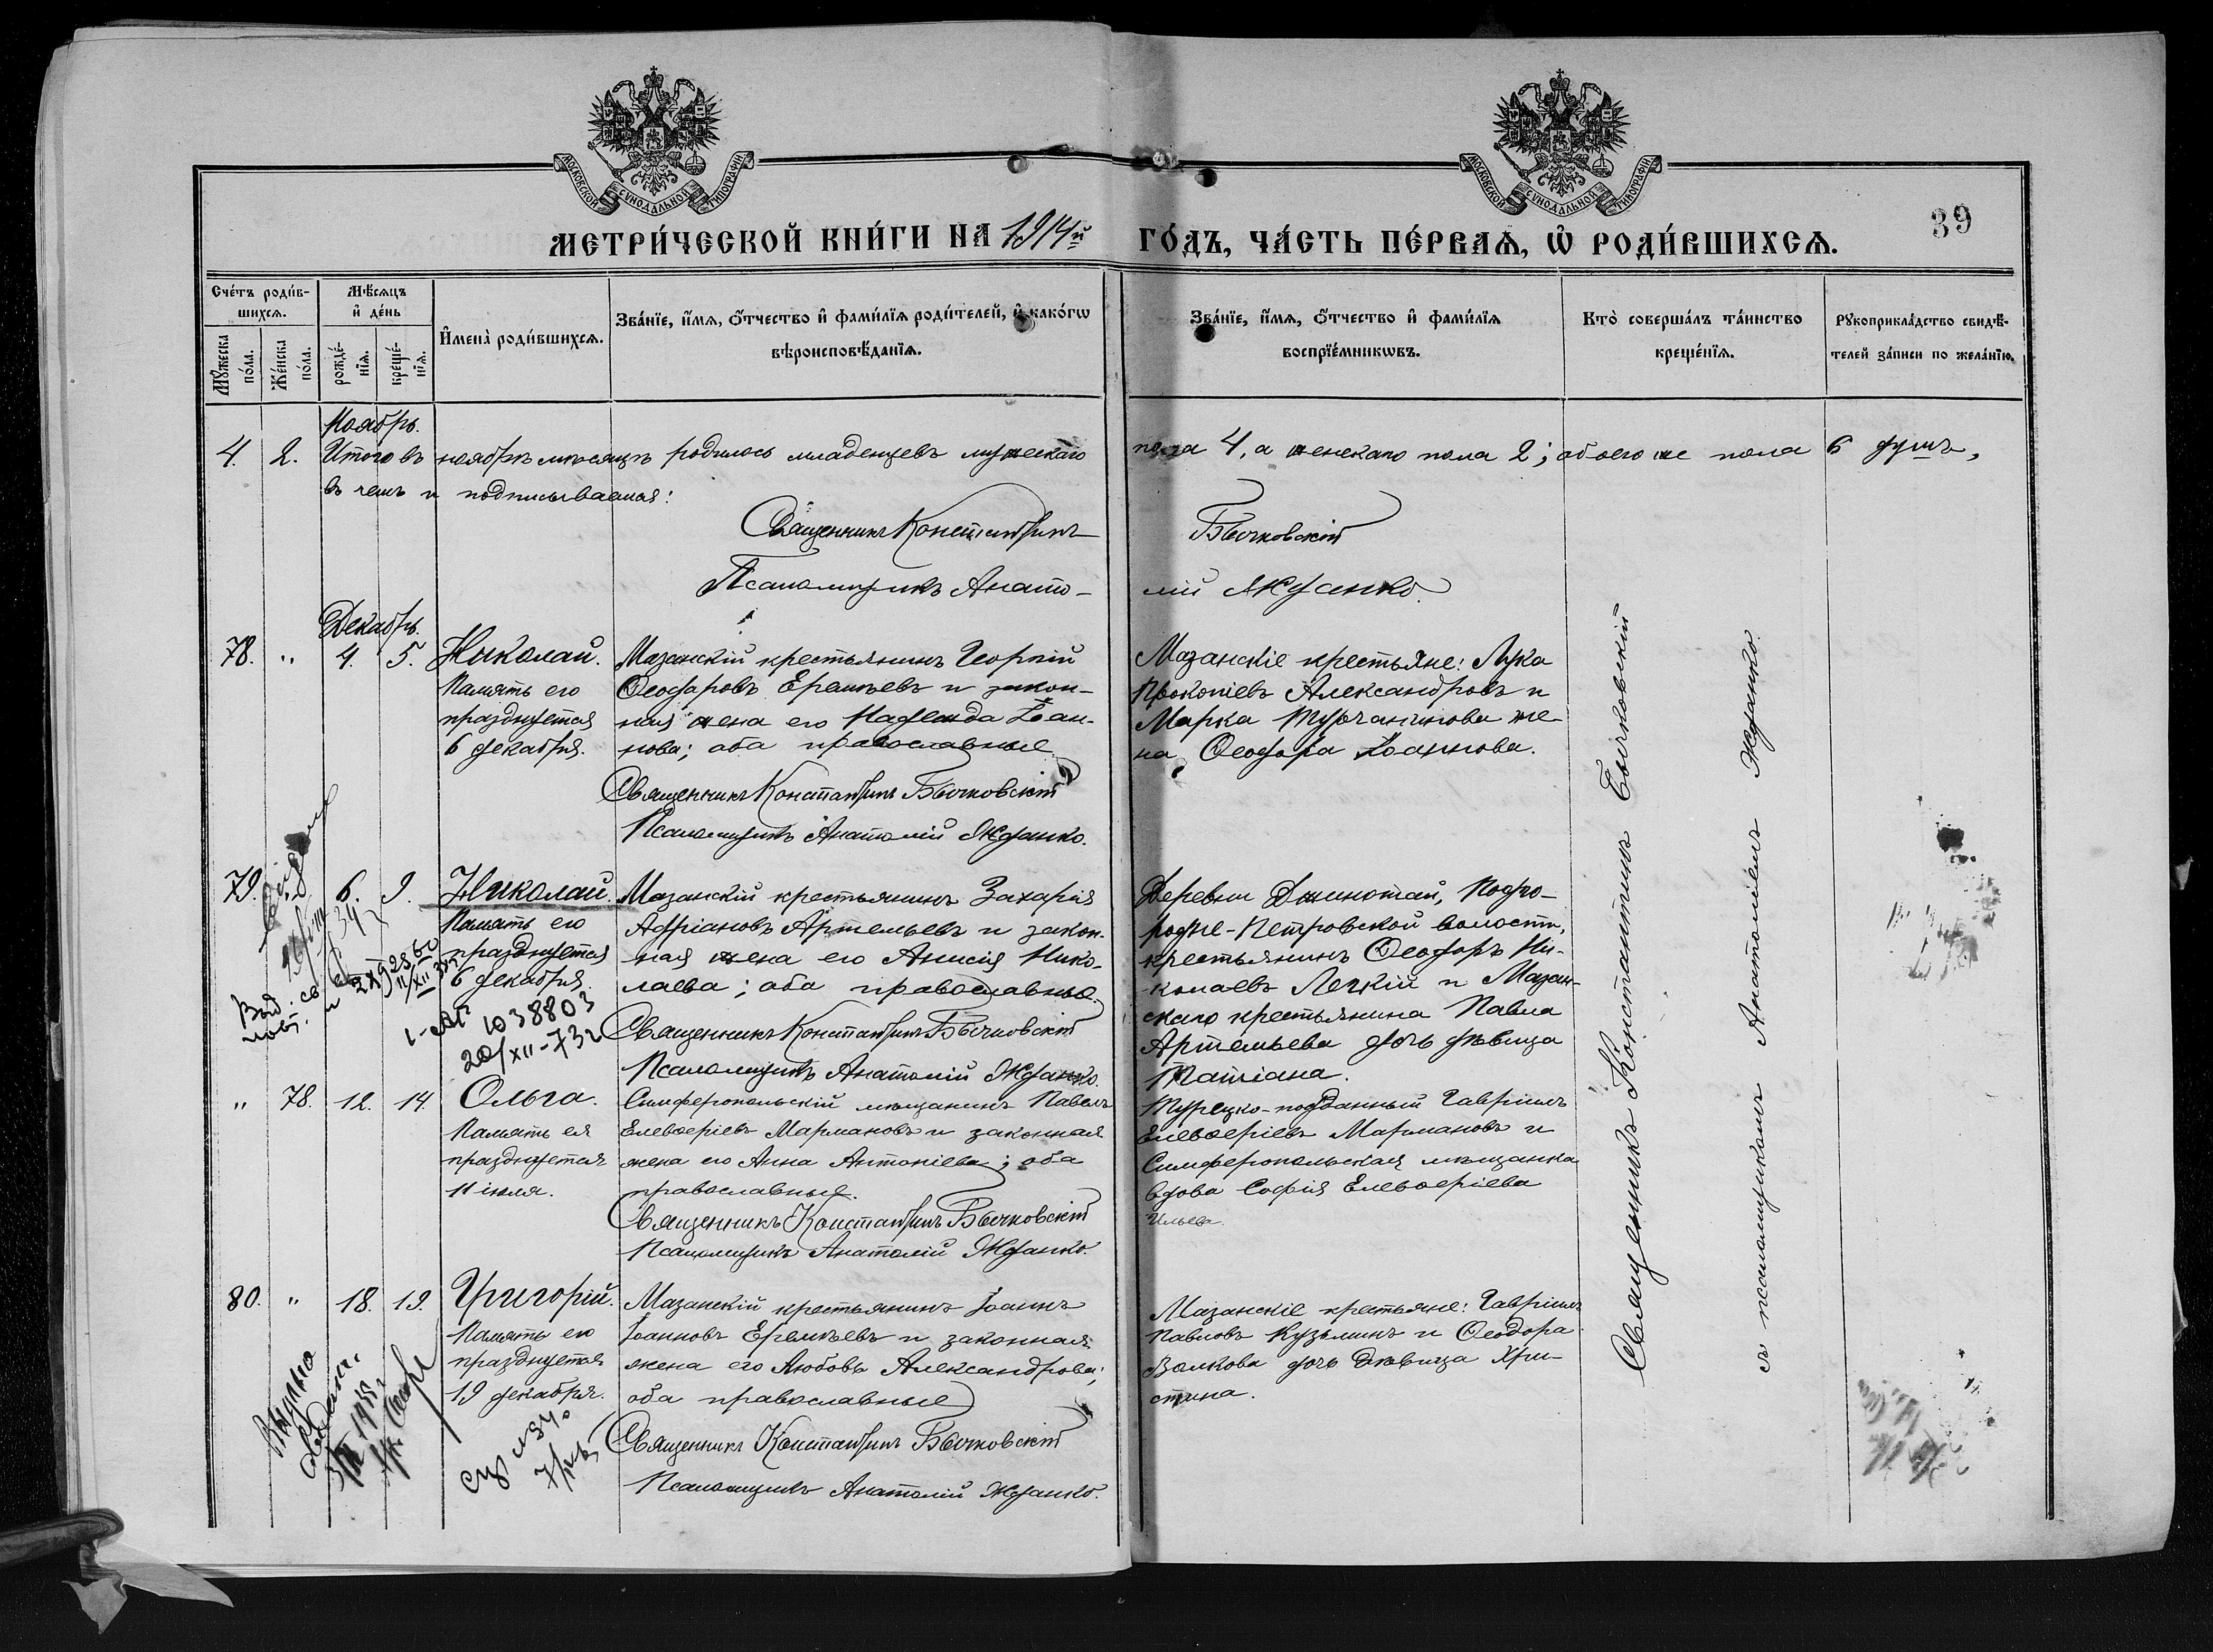 МОСКОВСКОЙ СѴНОДАЛЬНОЙ ТИПОГРАФІИ
МОСКОВСКОЙ СѴНОДАЛЬНОЙ ТИПОГРАФІИ
39
МЕТРИ́ЧЕСКОЙ КНИ́ГИ НА 1914й ГО́ДЪ, ЧА́СТЬ ПЕ́РВАѦ, Ѡ҆ РОДИ́ВШИХСѦ.
Сче́тъ роди́в-
шихсѧ.
Мѹ́жеска
по́ла.
Же́нска
по́ла.
Мѣ́сѧцъ
и҆ де́нь
рожде́-
нїѧ.
креще́-
нїѧ.
И҆мена̀ роди́вшихсѧ.
Зва́нїе, и҆́мѧ, ѻ҆́тчество и҆ фами́лїѧ роди́телей, и҆ како́гѡ
вѣроисповѣ́данїѧ.
Зва́нїе, и҆́мѧ, ѻ҆́тчество и҆ фами́лїѧ
воспрїе́мникѡвъ.
Кто̀ соверша́лъ та́инство
креще́нїѧ.
Рѹкоприкла́дство свидѣ́-
телей за́писи по жела́нїю.
Ноябрь.
4. 2. Итого въ ноябрѣ мѣсяцѣ родилось младенцевъ мужескаго пола 4, а женскаго пола 2; обоего же пола 6 душъ,
въ чемъ и подписываемся:
Священникъ Константинъ Бычковскій
Псаломщикъ Анатолій Жданко.
Декабрь.
78. " 4. 5. Николай.
Память его
празднуется
6 декабря.
Мазанскій крестьянинъ Георгій
Ѳеодоровъ Еремѣевъ и закон-
ная жена его Надежда Іоан-
нова; оба православные.
Священникъ Константинъ Бычковскій
Псаломщикъ Анатолій Жданко.
Мазанскіе крестьяне: Лука
Прокопіевъ Александровъ и
Марка Турчанинова же-
на Ѳеодора Іоаннова.
79. 6. 9. Николай.
Память его
празднуется
6 декабря.
1038803
20/XII-73г
Мазанскій крестьянинъ Захарія
Адріановъ Артемьевъ и закон-
ная жена его Анисія Нико-
лаева; оба православные.
Священникъ Константинъ Бычковскій
Псаломщикъ Анатолій Жданко.
Деревни Джинотай, Подго-
родне-Петровской волости,
крестьянинъ Ѳеодоръ Ни-
колаевъ Легкій и Мазан-
скаго крестьянина Павла
Артемьева дочь дѣвица
Татіана.
" 78. 12. 14. Ольга.
Память ея
празднуется
11 іюля.
Симферопольскій мѣщанинъ Павелъ
Елевѳеріевъ Мармановъ и законная
жена его Анна Антоніева; оба
православные.
Священникъ Константинъ Бычковскій
Псаломщикъ Анатолій Жданко.
Турецко-подданный Гавріилъ
Елевѳеріевъ Мармановъ и
Симферопольская мѣщанка
вдова Софія Елевѳеріева
Ильева.
80. " 18. 19. Григорій.
Память его
празднуется
19 декабря.
Мазанскій крестьянинъ Іоаннъ
Іоанновъ Еремѣевъ и законная
жена его Любовь Александрова;
оба православные
Священникъ Константинъ Бычковскій
Псаломщикъ Анатолій Жданко.
Мазанскіе крестьяне: Гавріилъ
Павловъ Кузьминъ и Ѳеодора
Волкова дочь дѣвица Хри-
стина.
Священникъ Константинъ Бычковскій
съ псаломщикомъ Анатоліемъ Жданко.